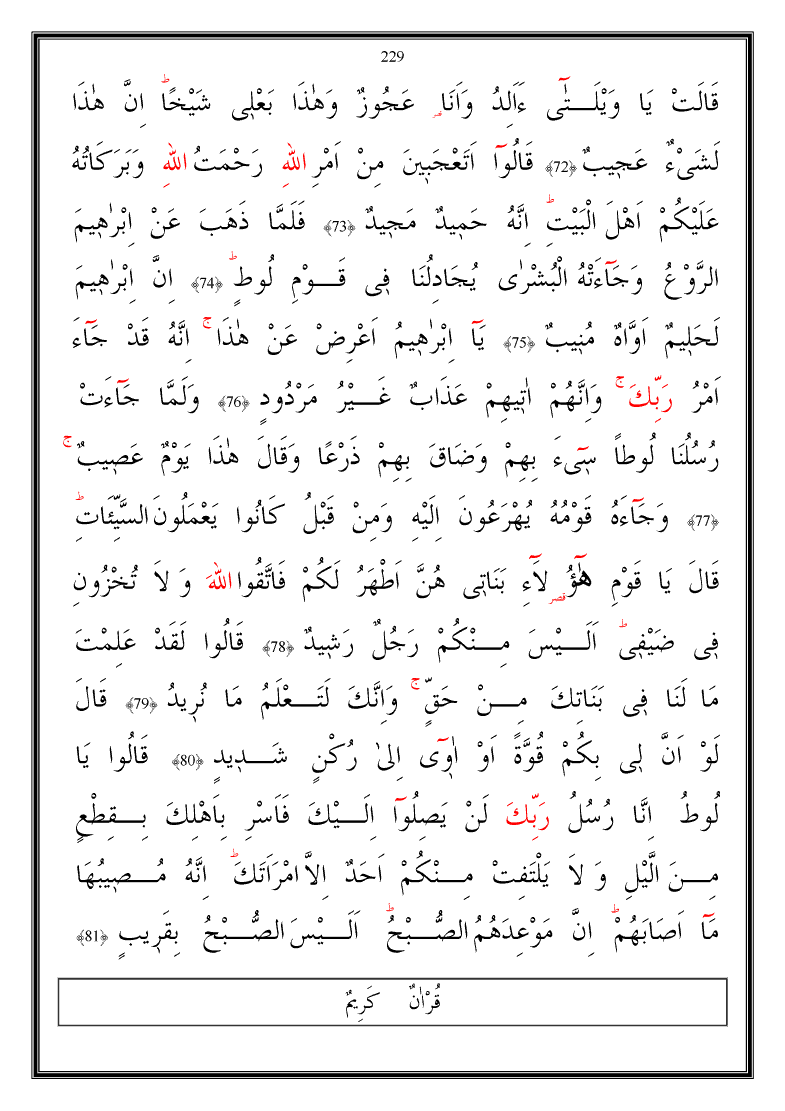 229
قَالَتْ يَا وَيْلَــتٰٓى ءَاَلِدُ وَاَنَا۬ قصر عَجُوزٌ وَهٰذَا بَعْلٖى شَيْخًاؕ اِنَّ هٰذَا
لَشَىْءٌ عَجٖيبٌ ﴿72﴾ قَالُوٓا اَتَعْجَبٖينَ مِنْ اَمْرِ اللّٰهِ رَحْمَتُ اللّٰهِ وَبَرَكَاتُهُ
عَلَيْكُمْ اَهْلَ الْبَيْتِؕ اِنَّهُ حَمٖيدٌ مَجٖيدٌ ﴿73﴾ فَلَمَّا ذَهَبَ عَنْ اِبْرٰهٖيمَ
الرَّوْعُ وَجَٓاءَتْهُ الْبُشْرٰى يُجَادِلُنَا فٖى قَــوْمِ لُوطٍؕ ﴿74﴾ اِنَّ اِبْرٰهٖيمَ
لَحَلٖيمٌ اَوَّاهٌ مُنٖيبٌ ﴿75﴾ يَٓا اِبْرٰهٖيمُ اَعْرِضْ عَنْ هٰذَاۚ اِنَّهُ قَدْ جَٓاءَ
اَمْرُ رَبِّكَۚ وَاِنَّهُمْ اٰتٖيهِمْ عَذَابٌ غَــيْرُ مَرْدُودٍ ﴿76﴾ وَلَمَّا جَٓاءَتْ
رُسُلُنَا لُوطاً سٖٓىءَ بِهِمْ وَضَاقَ بِهِمْ ذَرْعًا وَقَالَ هٰذَا يَوْمٌ عَصٖيبٌۚ
﴿77﴾ وَجَٓاءَهُ قَوْمُهُ يُهْرَعُونَ اِلَيْهِ وَمِنْ قَبْلُ كَانُوا يَعْمَلُونَ السَّيِّئَاتِؕ
قَالَ يَا قَوْمِ هٰٓؤُ۬ قصر لَٓاءِ بَنَاتٖى هُنَّ اَطْهَرُ لَكُمْ فَاتَّقُوا اللّٰهَ وَ لَا تُخْزُونِ
فٖى ضَيْفٖىؕ اَلَــيْسَ مِــنْكُمْ رَجُلٌ رَشٖيدٌ ﴿78﴾ قَالُوا لَقَدْ عَلِمْتَ
مَا لَنَا فٖى بَنَاتِكَ مِــنْ حَقٍّۚ وَاِنَّكَ لَتَــعْلَمُ مَا نُرٖيدُ ﴿79﴾ قَالَ
لَوْ اَنَّ لٖى بِكُمْ قُوَّةً اَوْ اٰوٖٓى اِلىٰ رُكْنٍ شَــدٖيدٍ ﴿80﴾ قَالُوا يَا
لُوطُ اِنَّا رُسُلُ رَبِّكَ لَنْ يَصِلُوٓا اِلَــيْكَ فَاَسْرِ بِاَهْلِكَ بِــقِطْعٍ
مِــنَ الَّيْلِ وَ لَا يَلْتَفِتْ مِــنْكُمْ اَحَدٌ اِلَّا امْرَاَتَكَؕ اِنَّهُ مُــصٖيبُهَا
مَٓا اَصَابَهُمْؕ اِنَّ مَوْعِدَهُمُ الصُّــبْحُؕ اَلَــيْسَ الصُّــبْحُ بِقَرٖيبٍ ﴿81﴾
قُرْاٰنٌ كَرِيمٌ